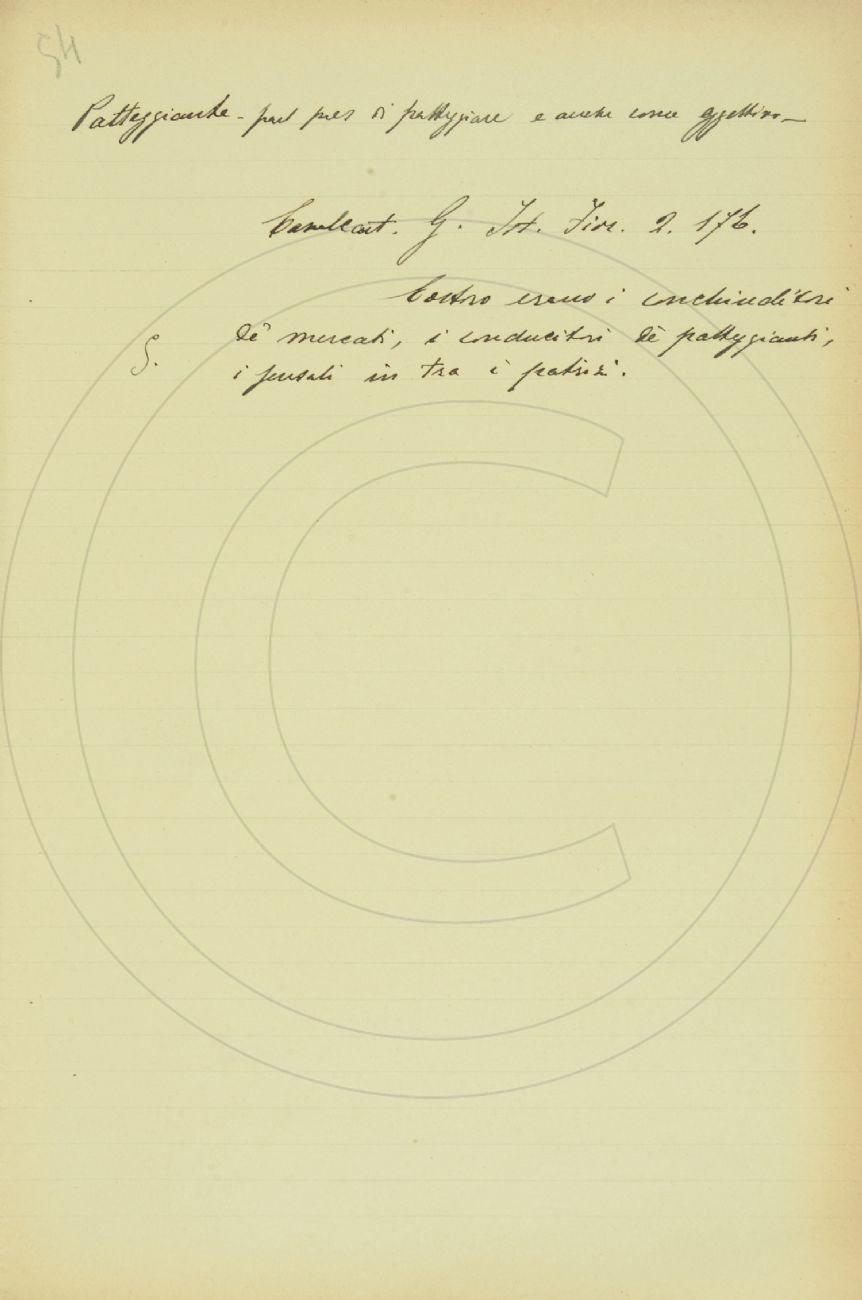 Patteggiante - part pres di patteggiare e anche come aggettivo -
Cavalcant. G. Ist. Fior. 2. 176.
Costoro erano i conchiuditori
de' mercati, i conducitori de' patteggianti,
S.
i sensali in tra i patrizi.